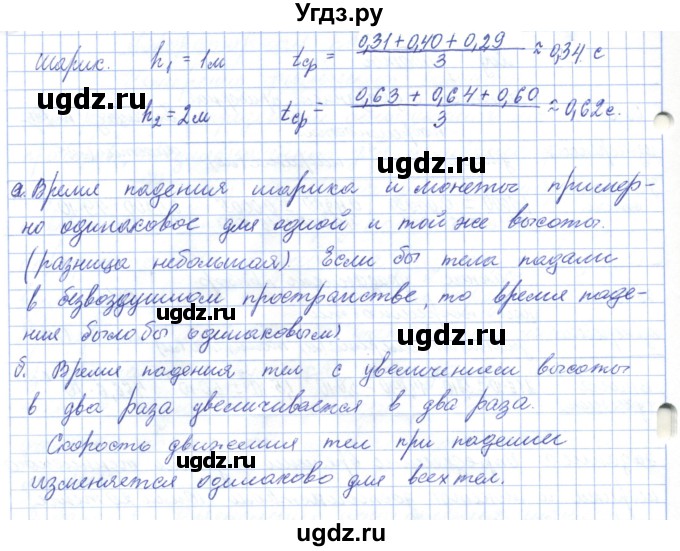 Угдз.ру
шарик. h₁ = 1м tср = (0,31+0,40+0,29)/3 ≈ 0,34 с
ugdz.ru ugdz.ru
h₂ = 2м tср = (0,63 + 0,64 + 0,60)/3 ≈ 0,62с.
ugdz.ru
а. Время падения шарика и монеты пример-
но одинаковое для одной и той же высоты.
(разница небольшая) Если бы тела падали
ugdz.ru ugdz.ru
в безвоздушном пространстве, то время паде-
ния было бы одинаковым)
ugdz.ru
б. Время падения тел с увеличением высоты
в два раза увеличивается в два раза.
ugdz.ru ugdz.ru
Скорость движения тел при падении
изменяется одинаково для всех тел.
ugdz.ru